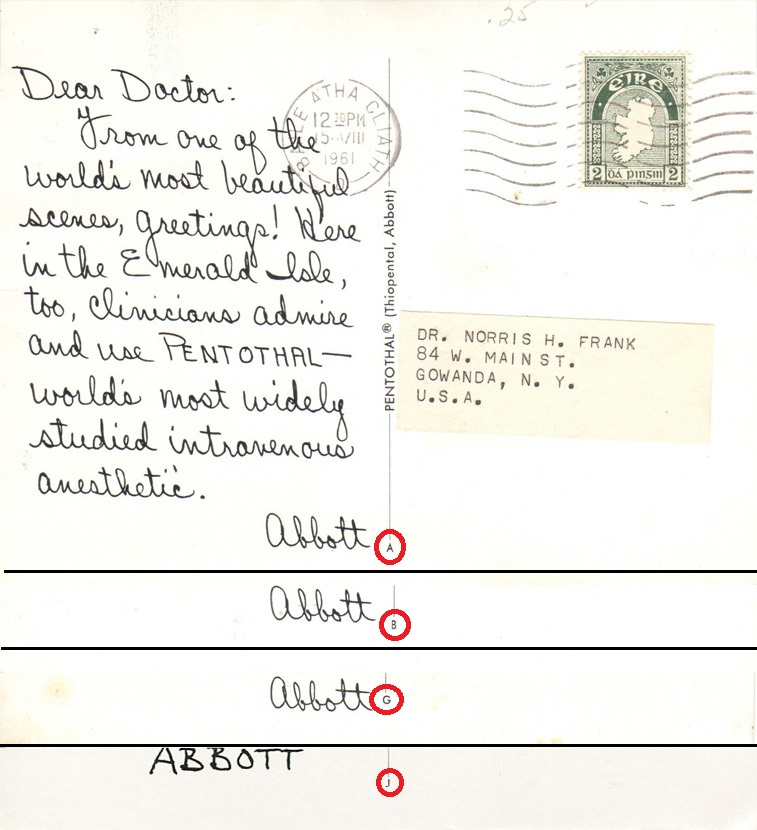 .25
Dear Doctor:
From one of the
world's most beautiful
scenes, greetings! Here
in the Emerald Isle,
too, clinicians admire
and use PENTOTHAL—
world's most widely
studied intravenous
anesthetic.
Abbott
PENTOTHAL® (Thiopental, Abbott)
A
ATHA CLIATH
12 30PM
15 VIII
1961
EIRE
2 ƿá pinginn 2
DR. NORRIS H. FRANK
84 W. MAIN ST.
GOWANDA, N. Y.
U.S.A.
Abbott
B
Abbott
G
ABBOTT
J